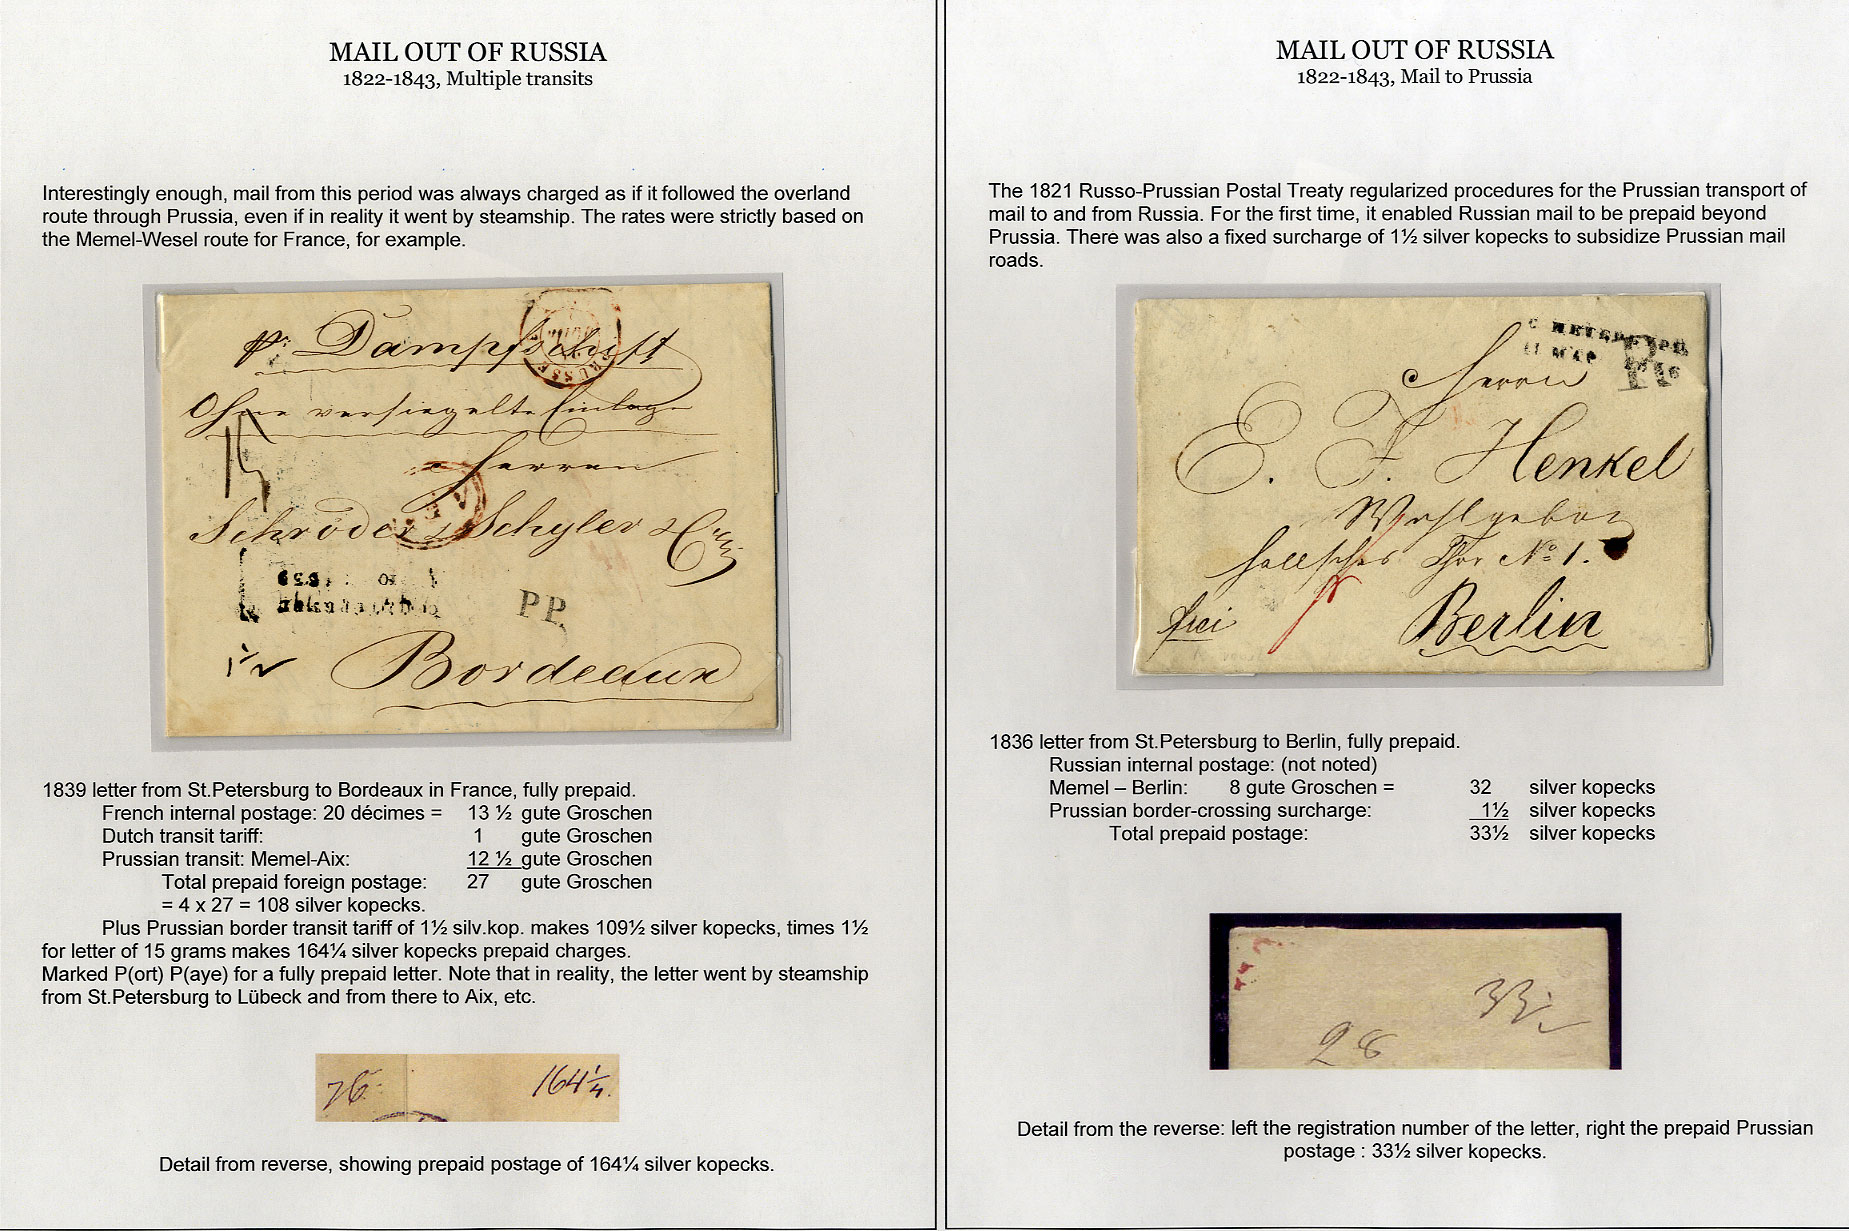 MAIL OUT OF RUSSIA
1822-1843, Multiple transits
Interestingly enough, mail from this period was always charged as if it followed the overland
route through Prussia, even if in reality it went by steamship. The rates were strictly based on
the Memel-Wesel route for France, for example.
pr. Dampfschiff
Ohne versiegelte Einlage
Herren
Schröder & Schyler & Co
P.P.
1½
Bordeaux
1839 letter from St.Petersburg to Bordeaux in France, fully prepaid.
French internal postage: 20 décimes = 13 ½ gute Groschen
Dutch transit tariff: 1 gute Groschen
Prussian transit: Memel-Aix: 12 ½ gute Groschen
Total prepaid foreign postage: 27 gute Groschen
= 4 x 27 = 108 silver kopecks.
Plus Prussian border transit tariff of 1½ silv.kop. makes 109½ silver kopecks, times 1½
for letter of 15 grams makes 164¼ silver kopecks prepaid charges.
Marked P(ort) P(aye) for a fully prepaid letter. Note that in reality, the letter went by steamship
from St.Petersburg to Lübeck and from there to Aix, etc.
76. 164¼.
Detail from reverse, showing prepaid postage of 164¼ silver kopecks.
MAIL OUT OF RUSSIA
1822-1843, Mail to Prussia
The 1821 Russo-Prussian Postal Treaty regularized procedures for the Prussian transport of
mail to and from Russia. For the first time, it enabled Russian mail to be prepaid beyond
Prussia. There was also a fixed surcharge of 1½ silver kopecks to subsidize Prussian mail
roads.
Herrn
E. F. Henkel
Wohlgeboren
Hallsches Thor No 1.
frei
Berlin
1836 letter from St.Petersburg to Berlin, fully prepaid.
Russian internal postage: (not noted)
Memel – Berlin: 8 gute Groschen = 32 silver kopecks
Prussian border-crossing surcharge: 1½ silver kopecks
Total prepaid postage: 33½ silver kopecks
28 33½
Detail from the reverse: left the registration number of the letter, right the prepaid Prussian
postage : 33½ silver kopecks.